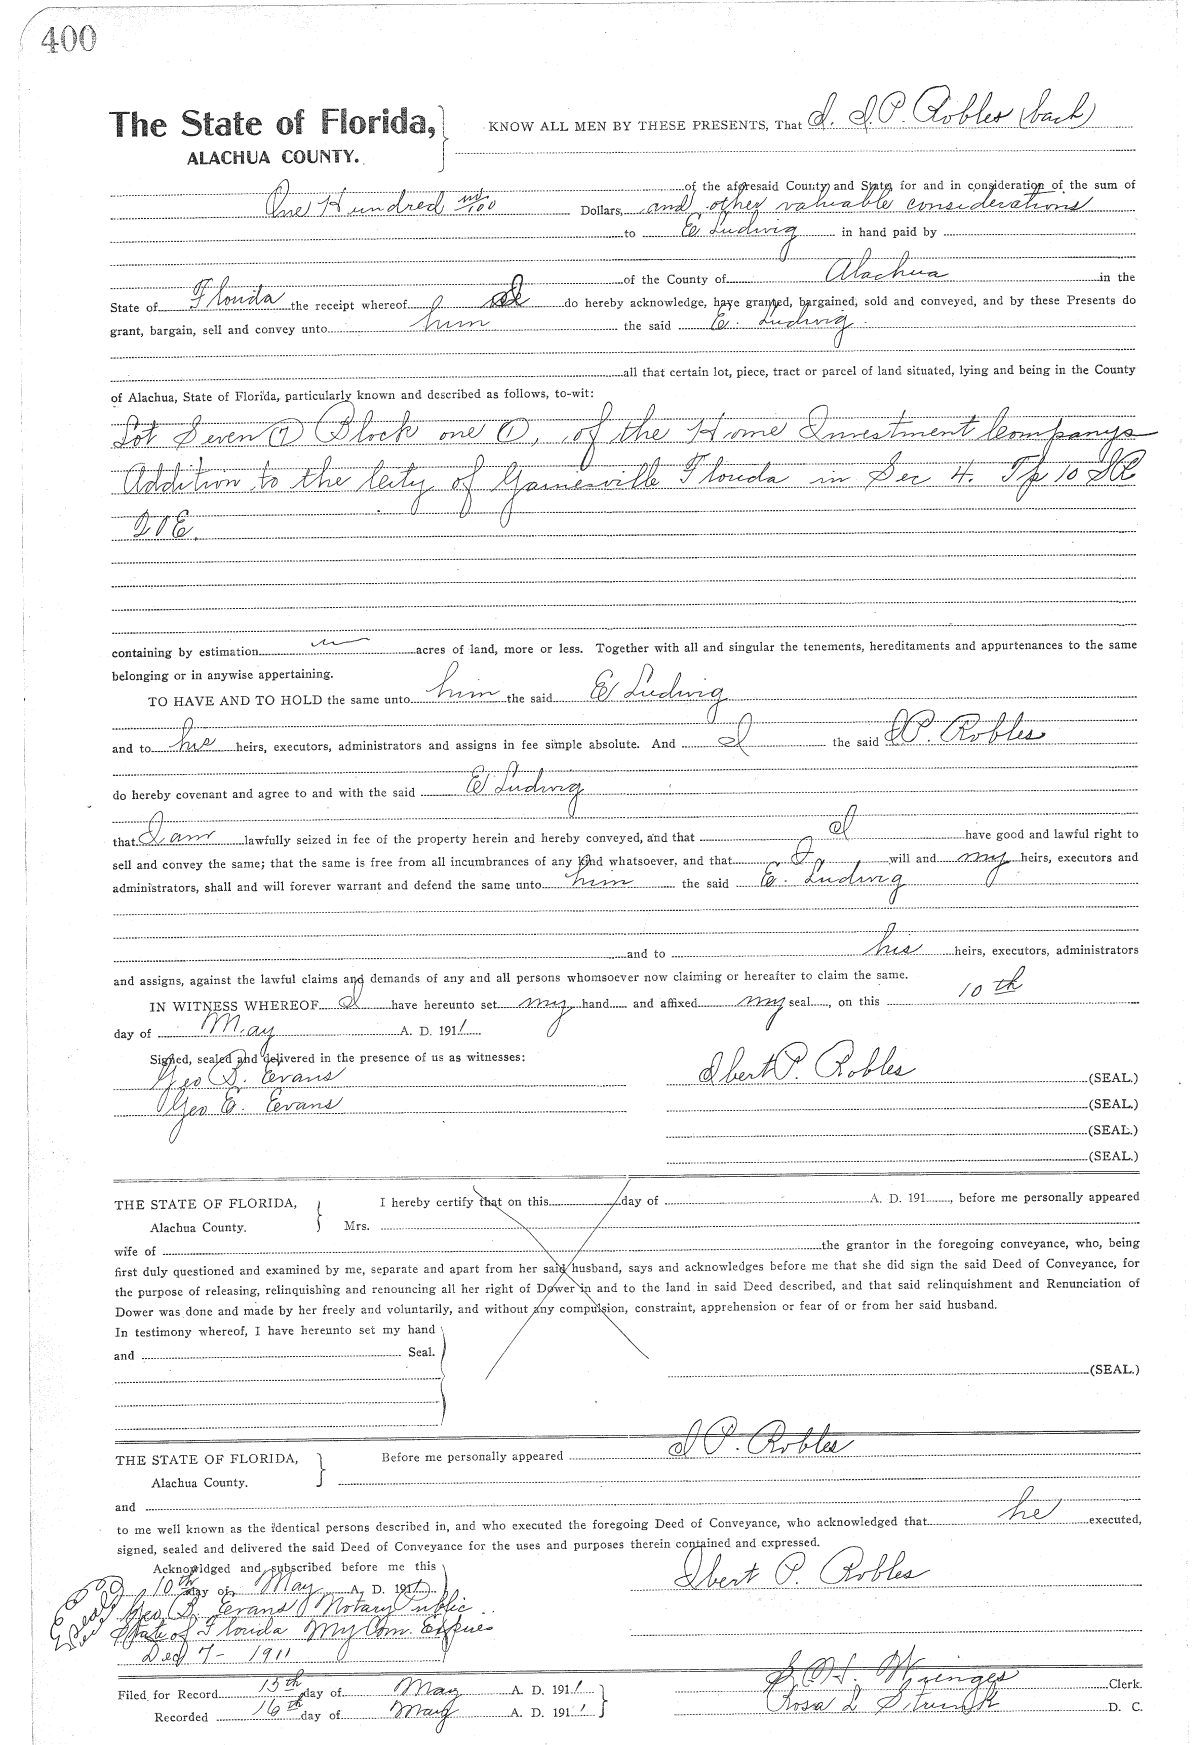 400
The State of Florida, KNOW ALL MEN BY THESE PRESENTS, That I. I.P. Robles (bach)
ALACHUA COUNTY.
of the aforesaid County and State, for and in consideration of the sum of
One Hundred no/100 Dollars, and other valuable considerations
to E Ludwig in hand paid by
of the County of Alachua in the
State of Florida the receipt whereof I do hereby acknowledge, have granted, bargained, sold and conveyed, and by these Presents do
grant, bargain, sell and convey unto him the said E. Ludwig.
all that certain lot, piece, tract or parcel of land situated, lying and being in the County
of Alachua, State of Florida, particularly known and described as follows, to-wit:
Lot Seven (7) Block one (1), of the Home Investment Companys
Addition to the City of Gainesville Florida in Sec 4. Tp 10 S R
20 E.
containing by estimation acres of land, more or less. Together with all and singular the tenements, hereditaments and appurtenances to the same
belonging or in anywise appertaining.
TO HAVE AND TO HOLD the same unto him the said E Ludwig
and to his heirs, executors, administrators and assigns in fee simple absolute. And I the said I P. Robles
do hereby covenant and agree to and with the said E Ludwig
that I am lawfully seized in fee of the property herein and hereby conveyed, and that I have good and lawful right to
sell and convey the same; that the same is free from all incumbrances of any kind whatsoever, and that I will and my heirs, executors and
administrators, shall and will forever warrant and defend the same unto him the said E. Ludwig
and to his heirs, executors, administrators
and assigns, against the lawful claims and demands of any and all persons whomsoever now claiming or hereafter to claim the same.
IN WITNESS WHEREOF I have hereunto set my hand and affixed my seal, on this 10th
day of May A. D. 1911
Signed, sealed and delivered in the presence of us as witnesses:
Geo S. Evans Ibert P. Robles (SEAL.)
Geo E. Evans (SEAL.)
(SEAL.)
(SEAL.)
THE STATE OF FLORIDA, I hereby certify that on this day of A. D. 191, before me personally appeared
Alachua County. Mrs.
wife of the grantor in the foregoing conveyance, who, being
first duly questioned and examined by me, separate and apart from her said husband, says and acknowledges before me that she did sign the said Deed of Conveyance, for
the purpose of releasing, relinquishing and renouncing all her right of Dower in and to the land in said Deed described, and that said relinquishment and Renunciation of
Dower was done and made by her freely and voluntarily, and without any compulsion, constraint, apprehension or fear of or from her said husband.
In testimony whereof, I have hereunto set my hand
and Seal.
(SEAL.)
THE STATE OF FLORIDA, Before me personally appeared I P. Robles
Alachua County.
and
to me well known as the identical persons described in, and who executed the foregoing Deed of Conveyance, who acknowledged that he executed,
signed, sealed and delivered the said Deed of Conveyance for the uses and purposes therein contained and expressed.
Acknowldged and subscribed before me this
10th day of May A. D. 1911 Ibert P. Robles
Geo S. Evans Notary Public
State of Florida My Com. Expires
Dec 7 - 1911
Filed for Record 15th day of May A. D. 1911 Clerk.
Recorded 16th day of May A. D. 191 1 Rosa L D. C.